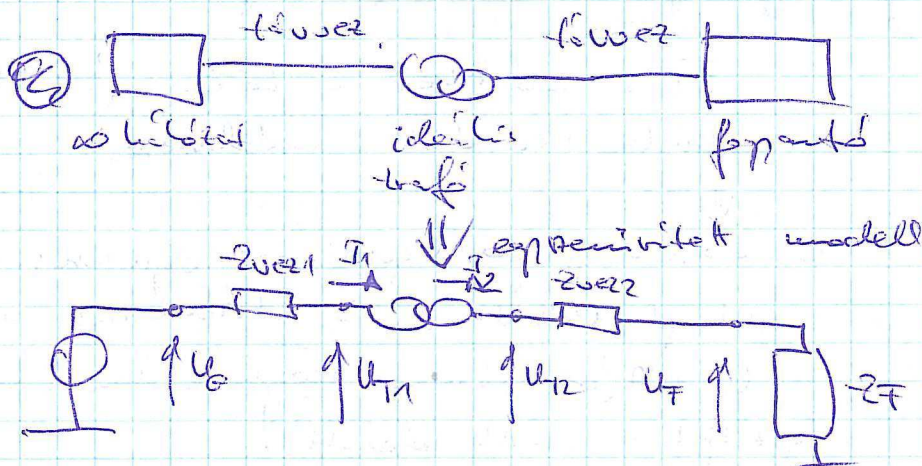 távvez. távvez
∞ hálózat ideális fogyasztó
trafó
⇓ egyszerűsített modell
Zvez1 I1 I2 Zvez2
UG UT1 UT2 UF ZF